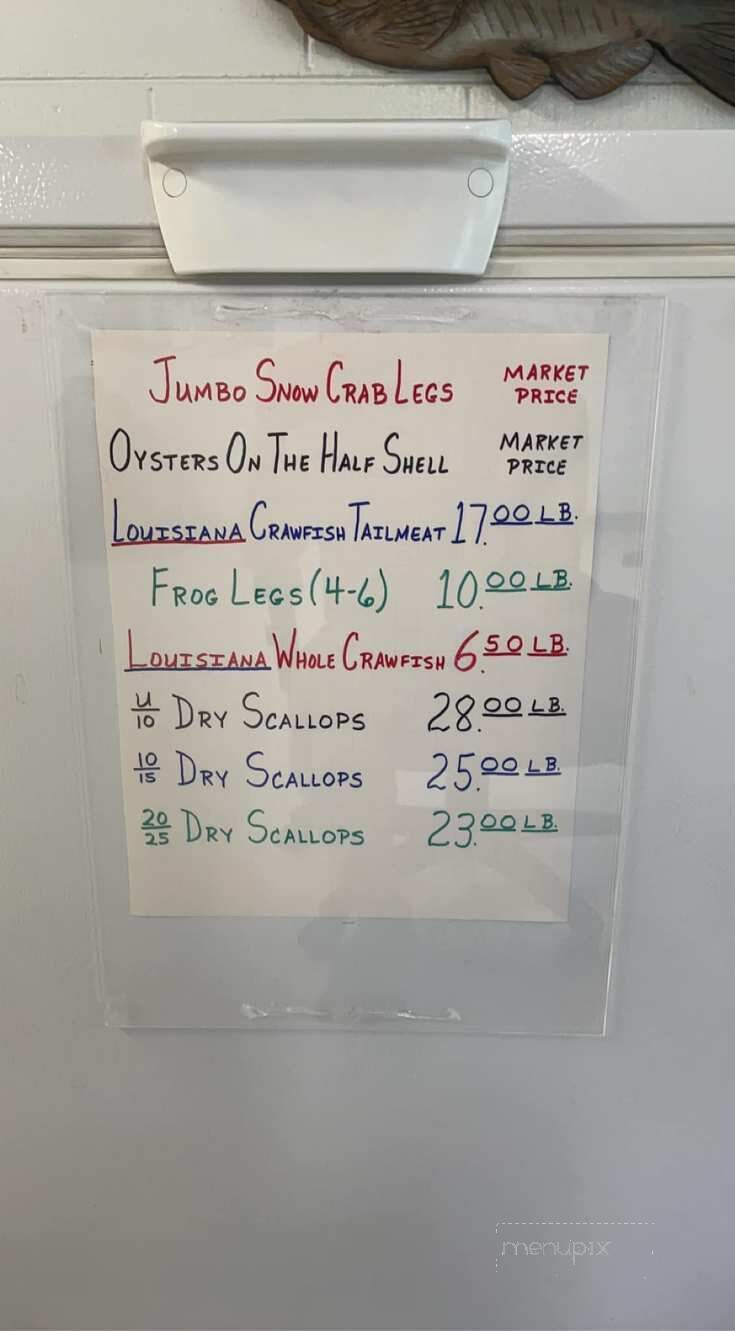 JUMBO SNOW CRAB LEGS MARKET PRICE
OYSTERS ON THE HALF SHELL MARKET PRICE
LOUISIANA CRAWFISH TAILMEAT 17.00 LB.
FROG LEGS (4-6) 10.00 LB.
LOUISIANA WHOLE CRAWFISH 6.50 LB.
U/10 DRY SCALLOPS 28.00 LB.
10/15 DRY SCALLOPS 25.00 LB.
20/25 DRY SCALLOPS 23.00 LB.
menupix